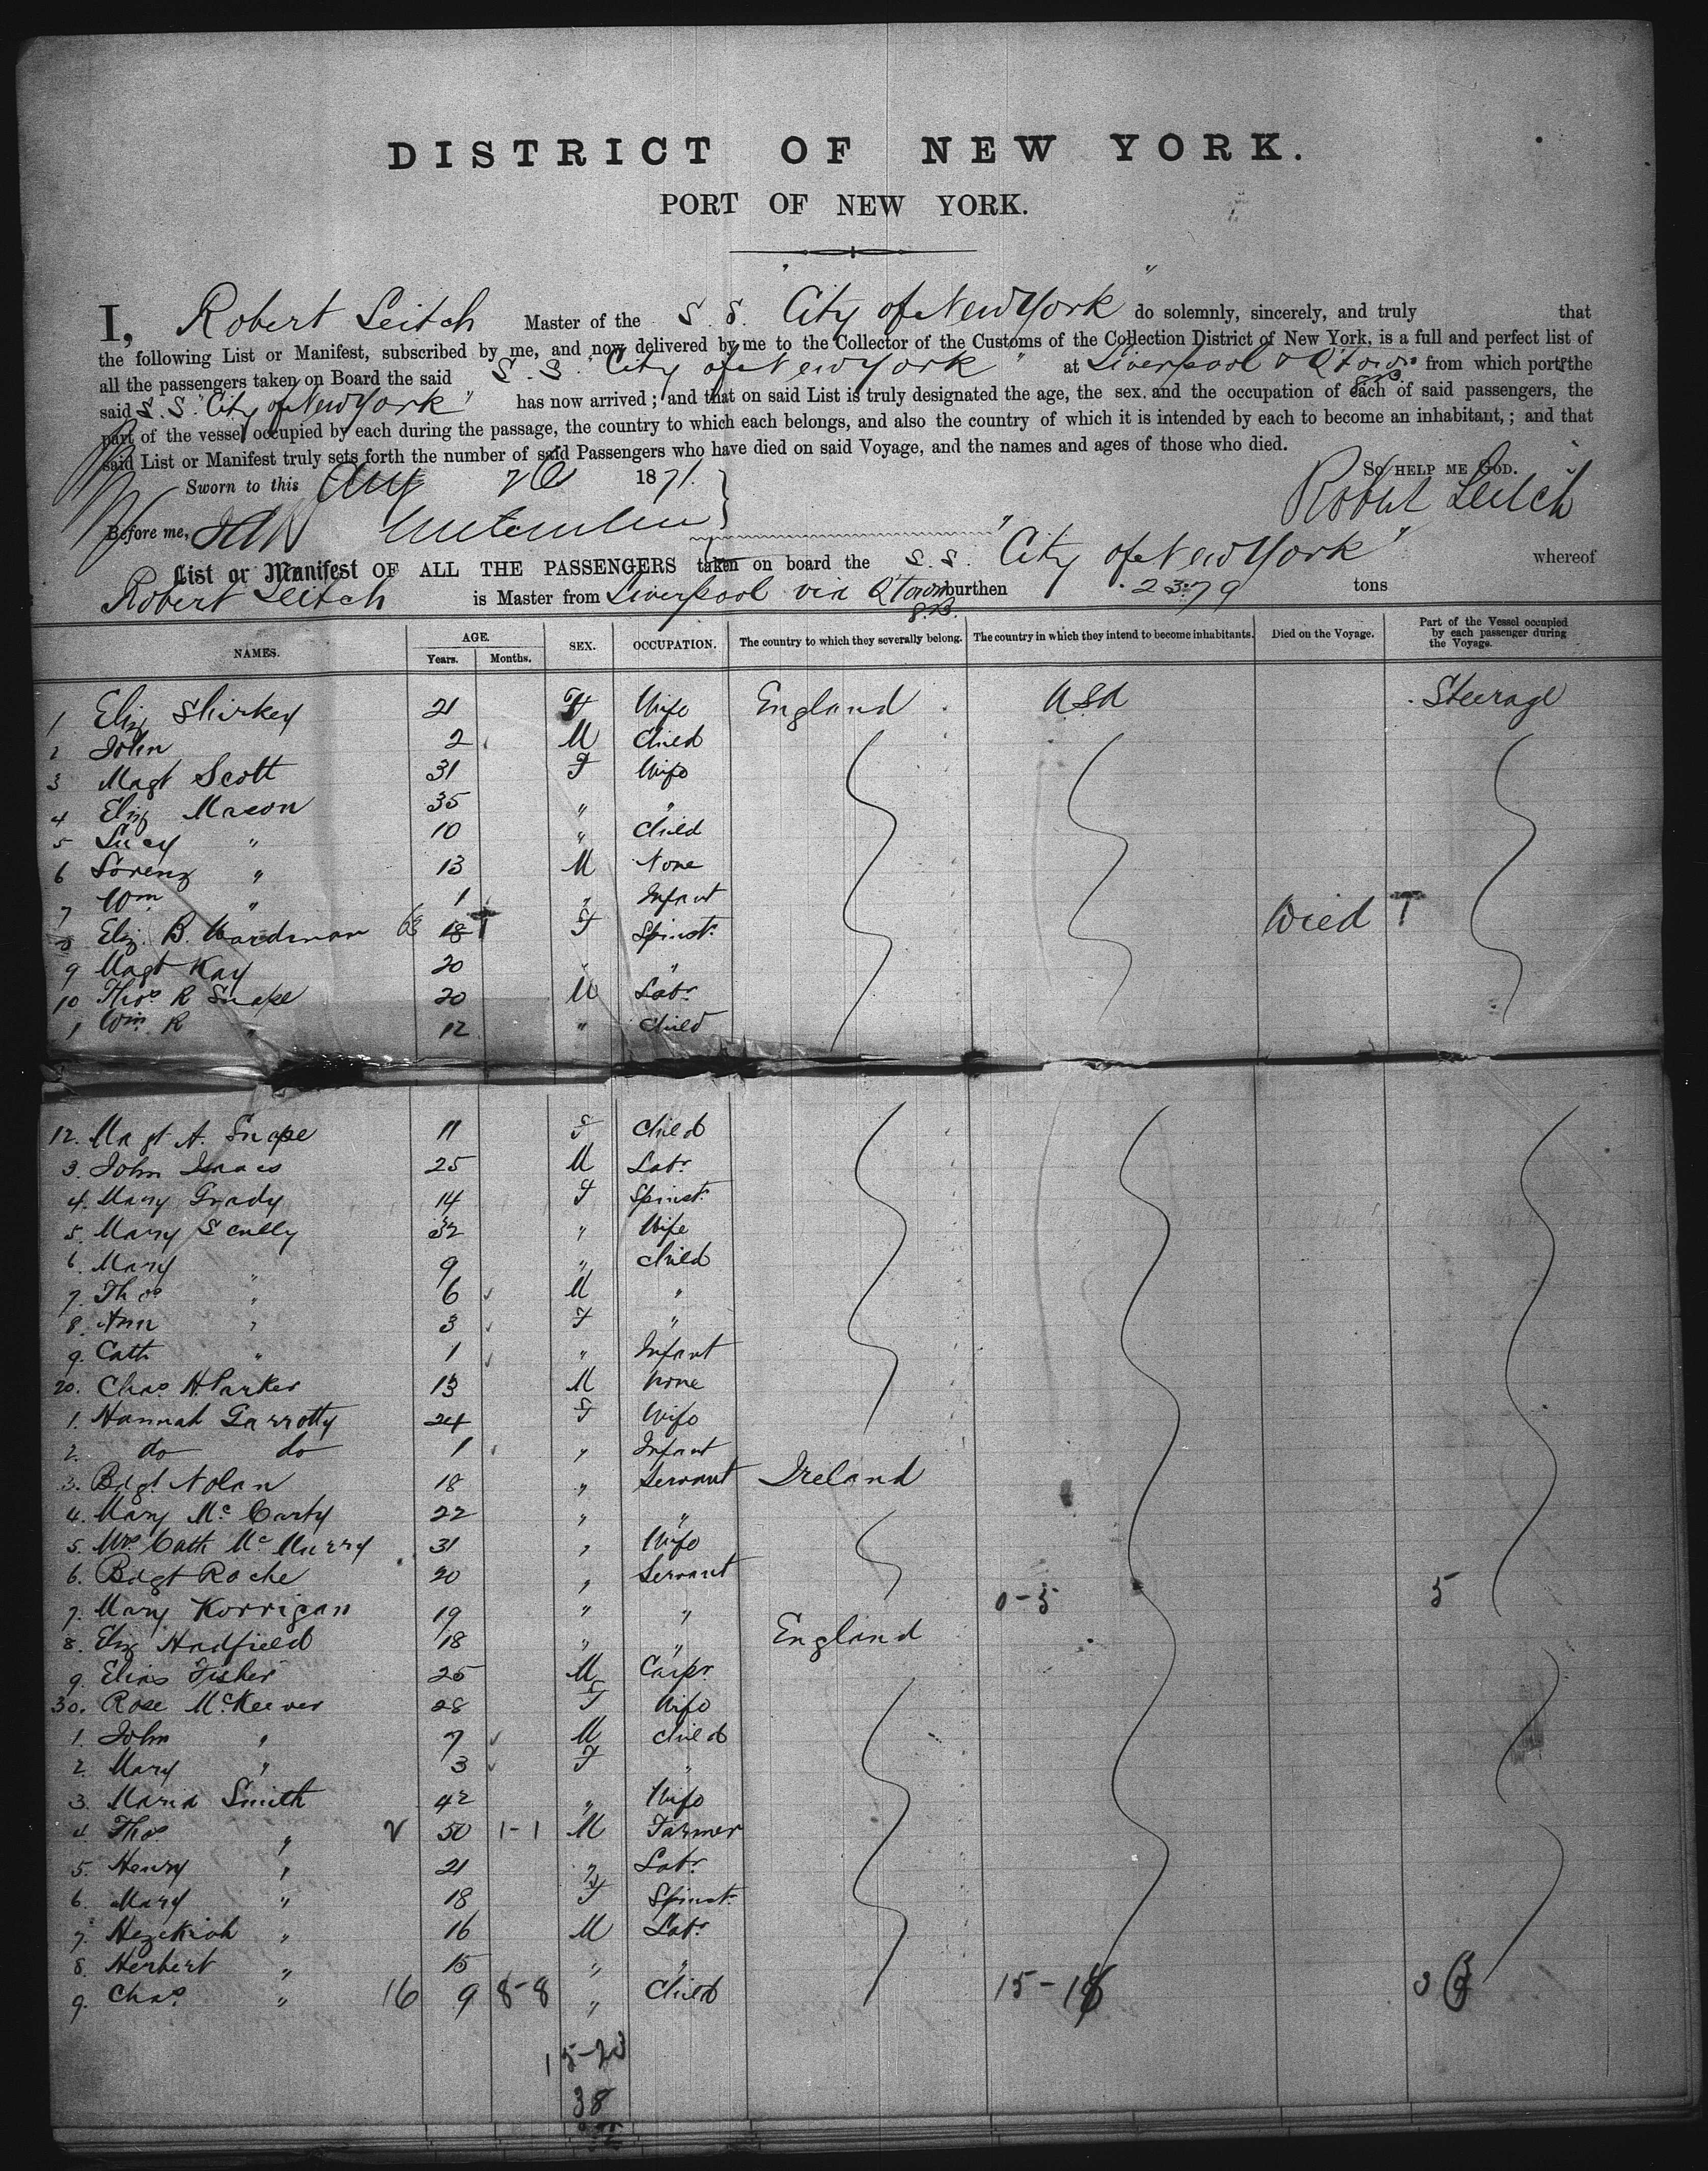 DISTRICT OF NEW YORK.
PORT OF NEW YORK.
I, Robert Leitch Master of the S. S. "City of New York" do solemnly, sincerely, and truly that
the following List or Manifest, subscribed by me, and now delivered by me to the Collector of the Customs of the Collection District of New York, is a full and perfect list of
all the passengers taken on Board the said S. S. "City of New York" at Liverpool & Qtown from which port the
said S. S. "City of New York" has now arrived; and that on said List is truly designated the age, the sex, and the occupation of each of said passengers, the
part of the vessel occupied by each during the passage, the country to which each belongs, and also the country of which it is intended by each to become an inhabitant,; and that
said List or Manifest truly sets forth the number of said Passengers who have died on said Voyage, and the names and ages of those who died.
So HELP ME GOD.
Sworn to this Aug 26 1871.
Robert Leitch
Before me,
List or Manifest OF ALL THE PASSENGERS taken on board the S. S. "City of New York" whereof
Robert Leitch is Master from Liverpool via Qtown burthen 2379 tons
NAMES. AGE. Years. Months. SEX. OCCUPATION. The country to which they severally belong. The country in which they intend to become inhabitants. Died on the Voyage. Part of the Vessel occupied by each passenger during the Voyage.
1 Eliz Shirkey 21 F Wife England USA Steerage
2 John 2 M Child
3 Magt Scott 31 F Wife
4 Eliz Mason 35 " "
5 Lucy " 10 " Child
6 Lorenz " 13 M None
7 Wm " 1 " Infant
8 Eliz. B. Wardman 18 F Spinstr Died
9 Magt Kay 20 " "
10 Thos R Snape 20 M Labr
1 Wm R " 12 " Child
12. Magt A. Snape 11 F Child
3. John Isaacs 25 M Labr
4. Mary Grady 14 F Spinstr
5. Mary Scully 32 " Wife
6. Mary " 9 " Child
7. Thos " 6 M "
8. Ann " 3 F "
9. Cath " 1 " Infant
20. Chas H. Parker 13 M None
1. Hannah Garrotty 24 F Wife
2. do do 1 " Infant
3. Bdgt Nolan 18 " Servant Ireland
4. Mary Mc Carty 22 " "
5. Mrs Cath Mc Murry 31 " Wife
6. Bdgt Roche 20 " Servant
7. Mary Korrigan 19 " " 0-5 5
8. Eliz Hadfield 18 " " England
9. Elias Fisher 25 M Carpr
30. Rose McKeever 28 F Wife
1. John " 7 M Child
2. Mary " 3 F "
3. Maria Smith 42 " Wife
4 Thos " 50 1-1 M Farmer
5. Henry " 21 " Labr
6. Mary " 18 F Spinstr
7. Hezekiah " 16 M Labr
8. Herbert " 15 " "
9. Chas " 16 9 8-8 " Child 15-18
15-23
38